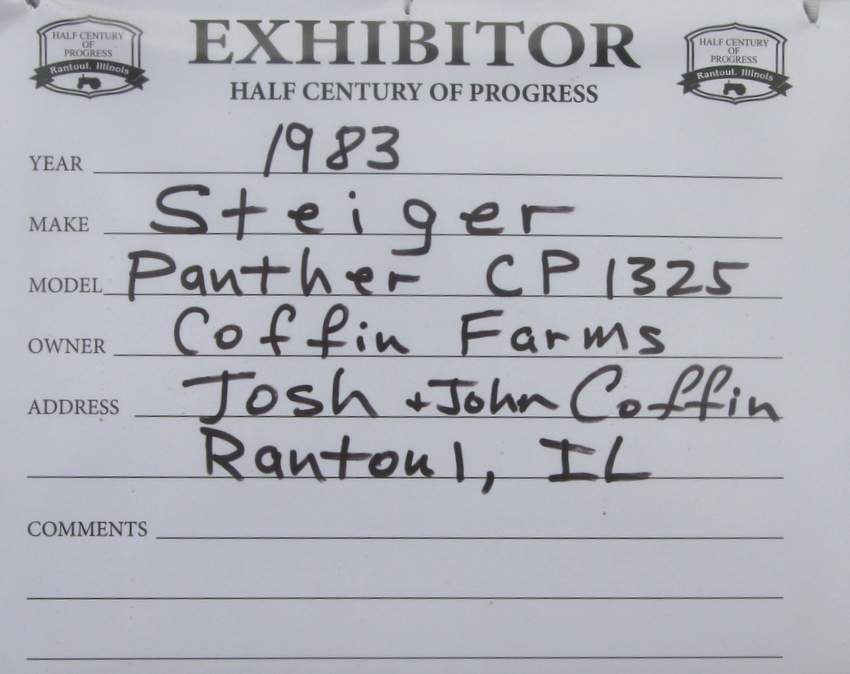 HALF CENTURY
OF
PROGRESS
Rantoul, Illinois
EXHIBITOR
HALF CENTURY OF PROGRESS
HALF CENTURY
OF
PROGRESS
Rantoul, Illinois
YEAR 1983
MAKE Steiger
MODEL Panther CP 1325
OWNER Coffin Farms
ADDRESS Josh + John Coffin
Rantoul, IL
COMMENTS